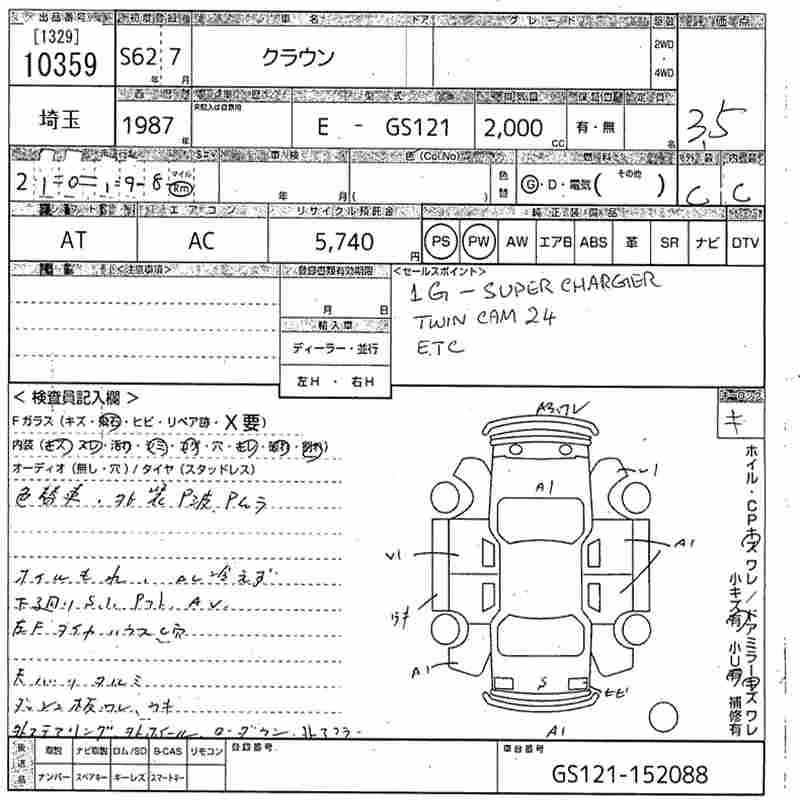 出品番号 初度登録年 車名 ドア グレード 駆動 評価点
[1329]
10359
S62 年 7 月
クラウン
2WD
・
4WD
3.5
埼玉
西暦 車歴 型式 排気量 保証書 定員
1987 年
E - GS121
2,000 CC
有・無
外装 内装
C C
走行 車検 色(Col.No) 燃料
2 1 0 1 9 8 マイル Km
年 月
( )
色替
G・D・電気( その他 )
シフト エアコン リサイクル預託金 純正装備品
AT
AC
5,740 円
PS PW AW エアB ABS 革 SR ナビ DTV
<注意事項>
登録書類有効期限
月 日
輸入車
ディーラー・並行
左H ・ 右H
<セールスポイント>
1G - SUPER CHARGER
TWIN CAM 24
ETC
<検査員記入欄>
Fガラス(キズ・飛石・ヒビ・リペア跡・X要)
内装(キズ・スレ・汚れ・シミ・コゲ・穴・モレ・破れ・割れ)
オーディオ(無し・穴)/タイヤ(スタッドレス)
色替車、外装P波、Pムラ
オイルもれ、AC冷えず
下回りS小
左Fタイヤハウス穴
天バリタルミ
ダッシュ板ワレ、ウキ
外ステアリング、外ホイール、ローダウン、外マフラー
キーロック
キ
A3ワレ
A1
U1
A1
V1
A1
S
ヒビ
A1
ホイル・CPキズワレ/ドアミラーキズワレ
小キズ有 小U有 補修有
後送品
取説 ナビ取説 ロム/SD B-CAS リモコン
ナンバー スペアキー キーレス スマートキー
登録番号
車台番号
GS121-152088